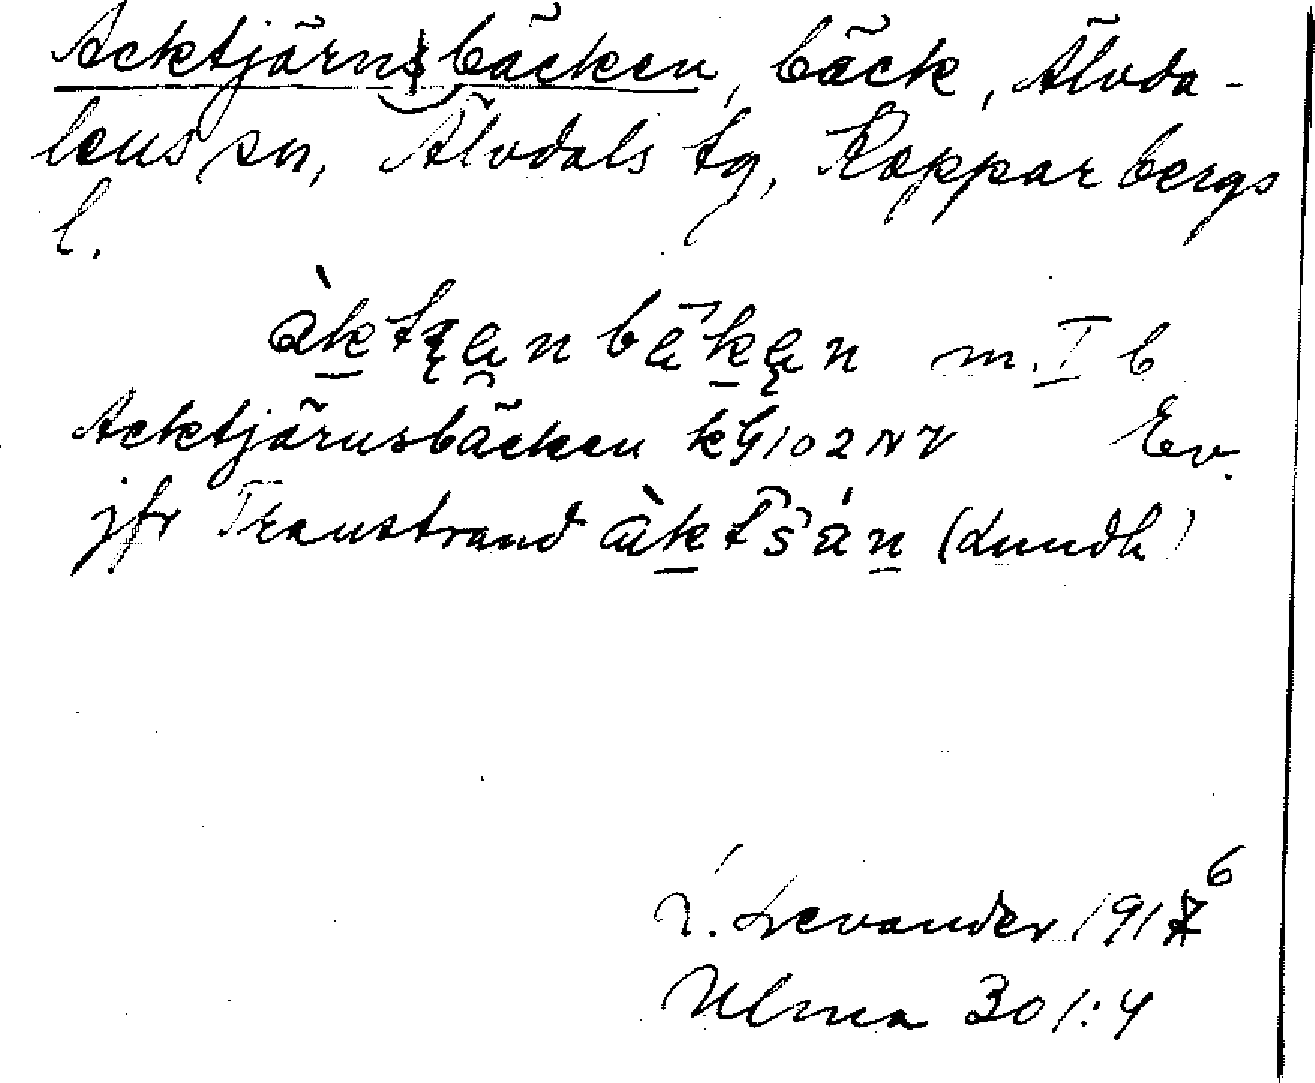 Acktjärnbäcken, bäck, Älvda-
lens sn, Älvdals tg, Kopparbergs
l.
m. I b
Acktjärnsbäcken kG102NV Ev.
jfr Transtrand (Lundh)
L. Levander 1916
Ulma 301:4